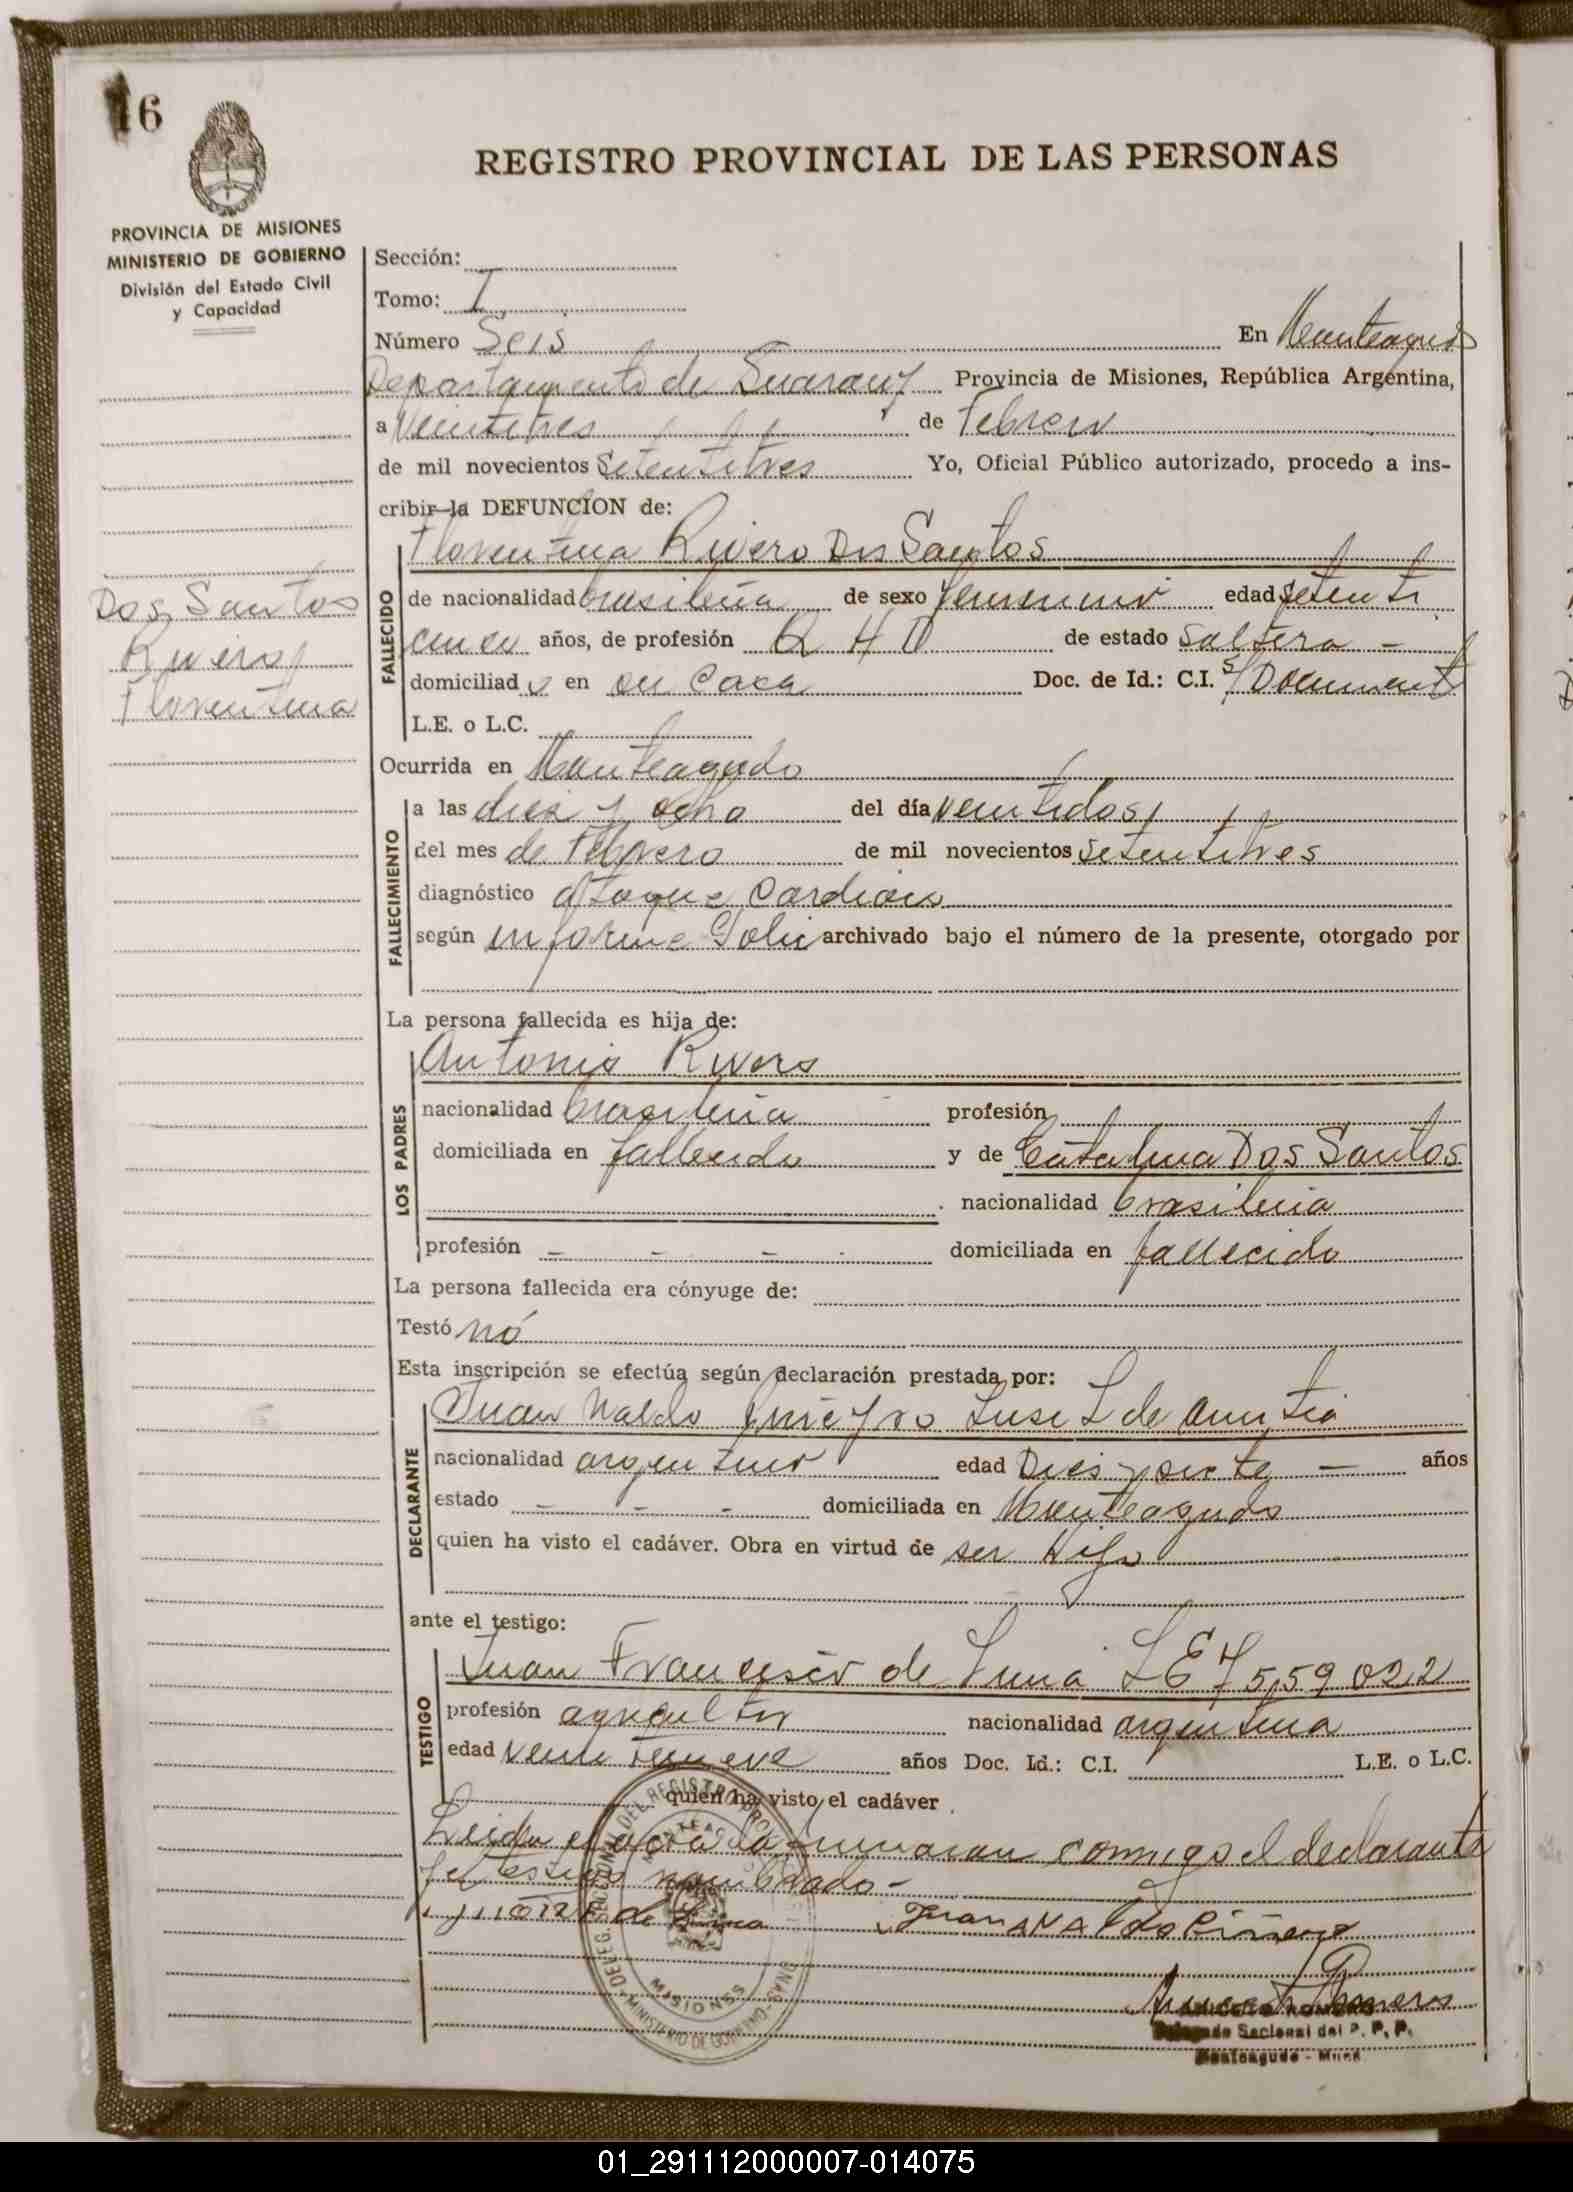 16
REGISTRO PROVINCIAL DE LAS PERSONAS
PROVINCIA DE MISIONES
MINISTERIO DE GOBIERNO
División del Estado Civil
y Capacidad
Sección:
Tomo: I
Número Seis En Monteagudo
Departamento de Guarany Provincia de Misiones, República Argentina,
a Veintitres de Febrero
de mil novecientos setentitres Yo, Oficial Público autorizado, procedo a ins-
cribir la DEFUNCION de:
Florentina Rivero Dos Santos
Dos Santos
Rivero
Florentina
FALLECIDO
de nacionalidad brasileña de sexo femenino edad setenti
cinco años, de profesión Q H D de estado soltera -
domiciliad a en su casa Doc. de Id.: C.I. s/Documento
L.E. o L.C.
Ocurrida en Monteagudo
FALLECIMIENTO
a las diez y ocho del día veintidos
del mes de Febrero de mil novecientos setentitres
diagnóstico ataque cardiaco
según informe Polic archivado bajo el número de la presente, otorgado por
La persona fallecida es hija de:
LOS PADRES
Antonio Rivero
nacionalidad brasileña profesión
domiciliada en fallecido y de Catalina Dos Santos
nacionalidad brasileña
profesión - - - domiciliada en fallecido
La persona fallecida era cónyuge de:
Testó nó
Esta inscripción se efectúa según declaración prestada por:
DECLARANTE
Juan Naldo
nacionalidad argentino edad Dies y siete - años
estado - - - domiciliada en Monteagudo
quien ha visto el cadáver. Obra en virtud de ser Hijo
ante el testigo:
TESTIGO
Juan Francisco de Lima L E 7,559,022
profesión agricultor nacionalidad argentina
edad veintinueve años Doc. Id.: C.I. L.E. o L.C.
quien ha visto el cadáver
Leida el acta la firmaran conmigo el declarante
y testigo nombrado -
de Lima Juan ANALdo Piñeiro
DELEG. SECCIONAL DEL REGISTRO PROV.
MONTEAG
MISIONES
MINISTERIO DE GOBIERNO
ROMERO
Delegado Seccional del R. P. P.
Monteagudo - Mnes.
01_291112000007-014075